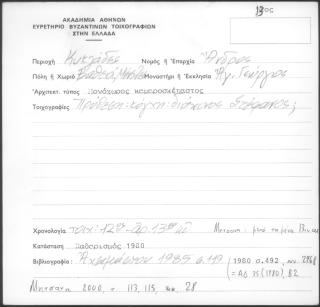 13ος
ΑΚΑΔΗΜΙΑ ΑΘΗΝΩΝ
ΕΥΡΕΤΗΡΙΟ ΒΥΖΑΝΤΙΝΩΝ ΤΟΙΧΟΓΡΑΦΙΩΝ
ΣΤΗΝ ΕΛΛΑΔΑ
Περιοχή Κυκλάδες Νομός ή Επαρχία Άνδρος
Πόλη ή Χωριό Μοναστήρι ή Εκκλησία Αγ. Γεώργιος
Αρχιτεκτ. τύπος Μονόχωρος καμαροσκέπαστος
Τοιχογραφίες Πρόθεση: κόγχη: διάκονος Στέφανος;
Χρονολογία τοιχ: 12ος - αρ. 13ου
Κατάσταση Καθαρισμός 1980
Βιβλιογραφία: 1985 σ.119 / 1980 σ.492,
= ΑΔ 35 (1980), Β2
2000, σ 113, 115, 28